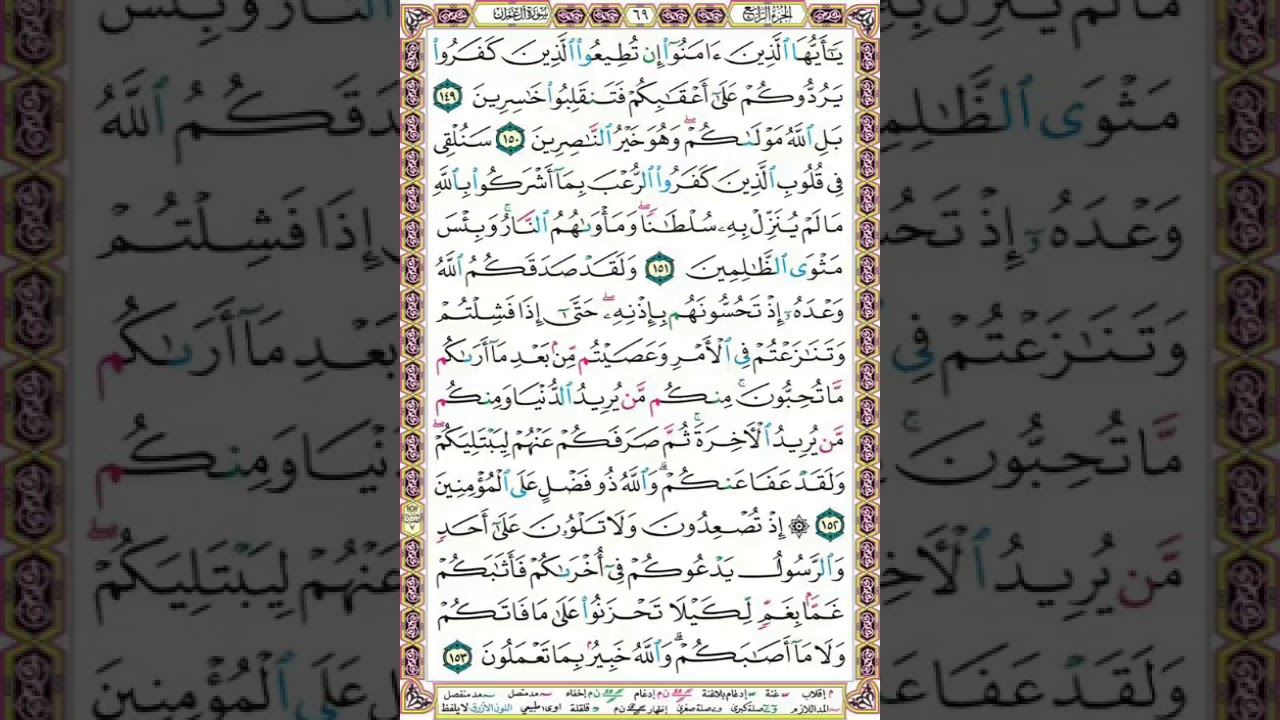 الجزء الرابع
٦٩
سورة آل عمران
يَـٰٓأَيُّهَا ٱلَّذِينَ ءَامَنُوٓا۟ إِن تُطِيعُوا۟ ٱلَّذِينَ كَفَرُوا۟
يَرُدُّوكُمْ عَلَىٰٓ أَعْقَـٰبِكُمْ فَتَنقَلِبُوا۟ خَـٰسِرِينَ ١٤٩
بَلِ ٱللَّهُ مَوْلَىٰكُمْ ۖ وَهُوَ خَيْرُ ٱلنَّـٰصِرِينَ ١٥٠ سَنُلْقِى
فِى قُلُوبِ ٱلَّذِينَ كَفَرُوا۟ ٱلرُّعْبَ بِمَآ أَشْرَكُوا۟ بِٱللَّهِ
مَا لَمْ يُنَزِّلْ بِهِۦ سُلْطَـٰنًا ۖ وَمَأْوَىٰهُمُ ٱلنَّارُ ۚ وَبِئْسَ
مَثْوَى ٱلظَّـٰلِمِينَ ١٥١ وَلَقَدْ صَدَقَكُمُ ٱللَّهُ
وَعْدَهُۥٓ إِذْ تَحُسُّونَهُم بِإِذْنِهِۦ ۖ حَتَّىٰٓ إِذَا فَشِلْتُمْ
وَتَنَـٰزَعْتُمْ فِى ٱلْأَمْرِ وَعَصَيْتُم مِّنۢ بَعْدِ مَآ أَرَىٰكُم
مَّا تُحِبُّونَ ۚ مِنكُم مَّن يُرِيدُ ٱلدُّنْيَا وَمِنكُم
مَّن يُرِيدُ ٱلْـَٔاخِرَةَ ۚ ثُمَّ صَرَفَكُمْ عَنْهُمْ لِيَبْتَلِيَكُمْ ۖ
وَلَقَدْ عَفَا عَنكُمْ ۗ وَٱللَّهُ ذُو فَضْلٍ عَلَى ٱلْمُؤْمِنِينَ
١٥٢ ۞ إِذْ تُصْعِدُونَ وَلَا تَلْوُۥنَ عَلَىٰٓ أَحَدٍ
وَٱلرَّسُولُ يَدْعُوكُمْ فِىٓ أُخْرَىٰكُمْ فَأَثَـٰبَكُمْ
غَمًّۢا بِغَمٍّ لِّكَيْلَا تَحْزَنُوا۟ عَلَىٰ مَا فَاتَكُمْ
وَلَا مَآ أَصَـٰبَكُمْ ۗ وَٱللَّهُ خَبِيرٌۢ بِمَا تَعْمَلُونَ ١٥٣
م إقلاب غنة إدغام بلاغنة ن م إدغام ن م إخفاء مد متصل مد منفصل
المد اللازم صلة كبرى صلة صغرى إظهار ن م قلقلة اوى طبيعي اللون الأزرق لا يلفظ